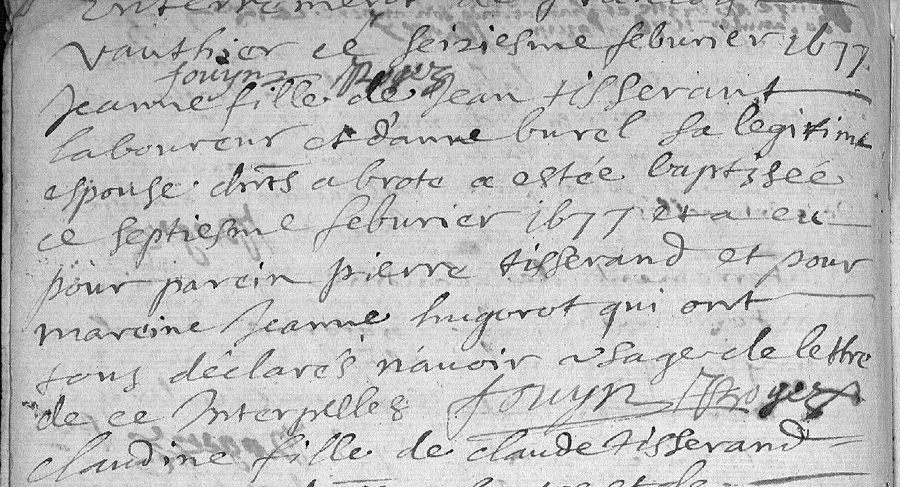 Interrement de
vauthier ce seiziesme feburier 1677.
Jouyn Roger
Jeanne fille de Jean tisserant
laboureur et d'anne burel sa legitime
espouse dmts a brote a estée baptisée
ce septiesme feburier 1677 et a eu
pour parein pierre tisserand et pour
mareine Jeanne hugorot qui ont
tous déclarés n'avoir usage de lettre
de ce Interpelles Jouyn Roger
claudine fille de claude tisserand